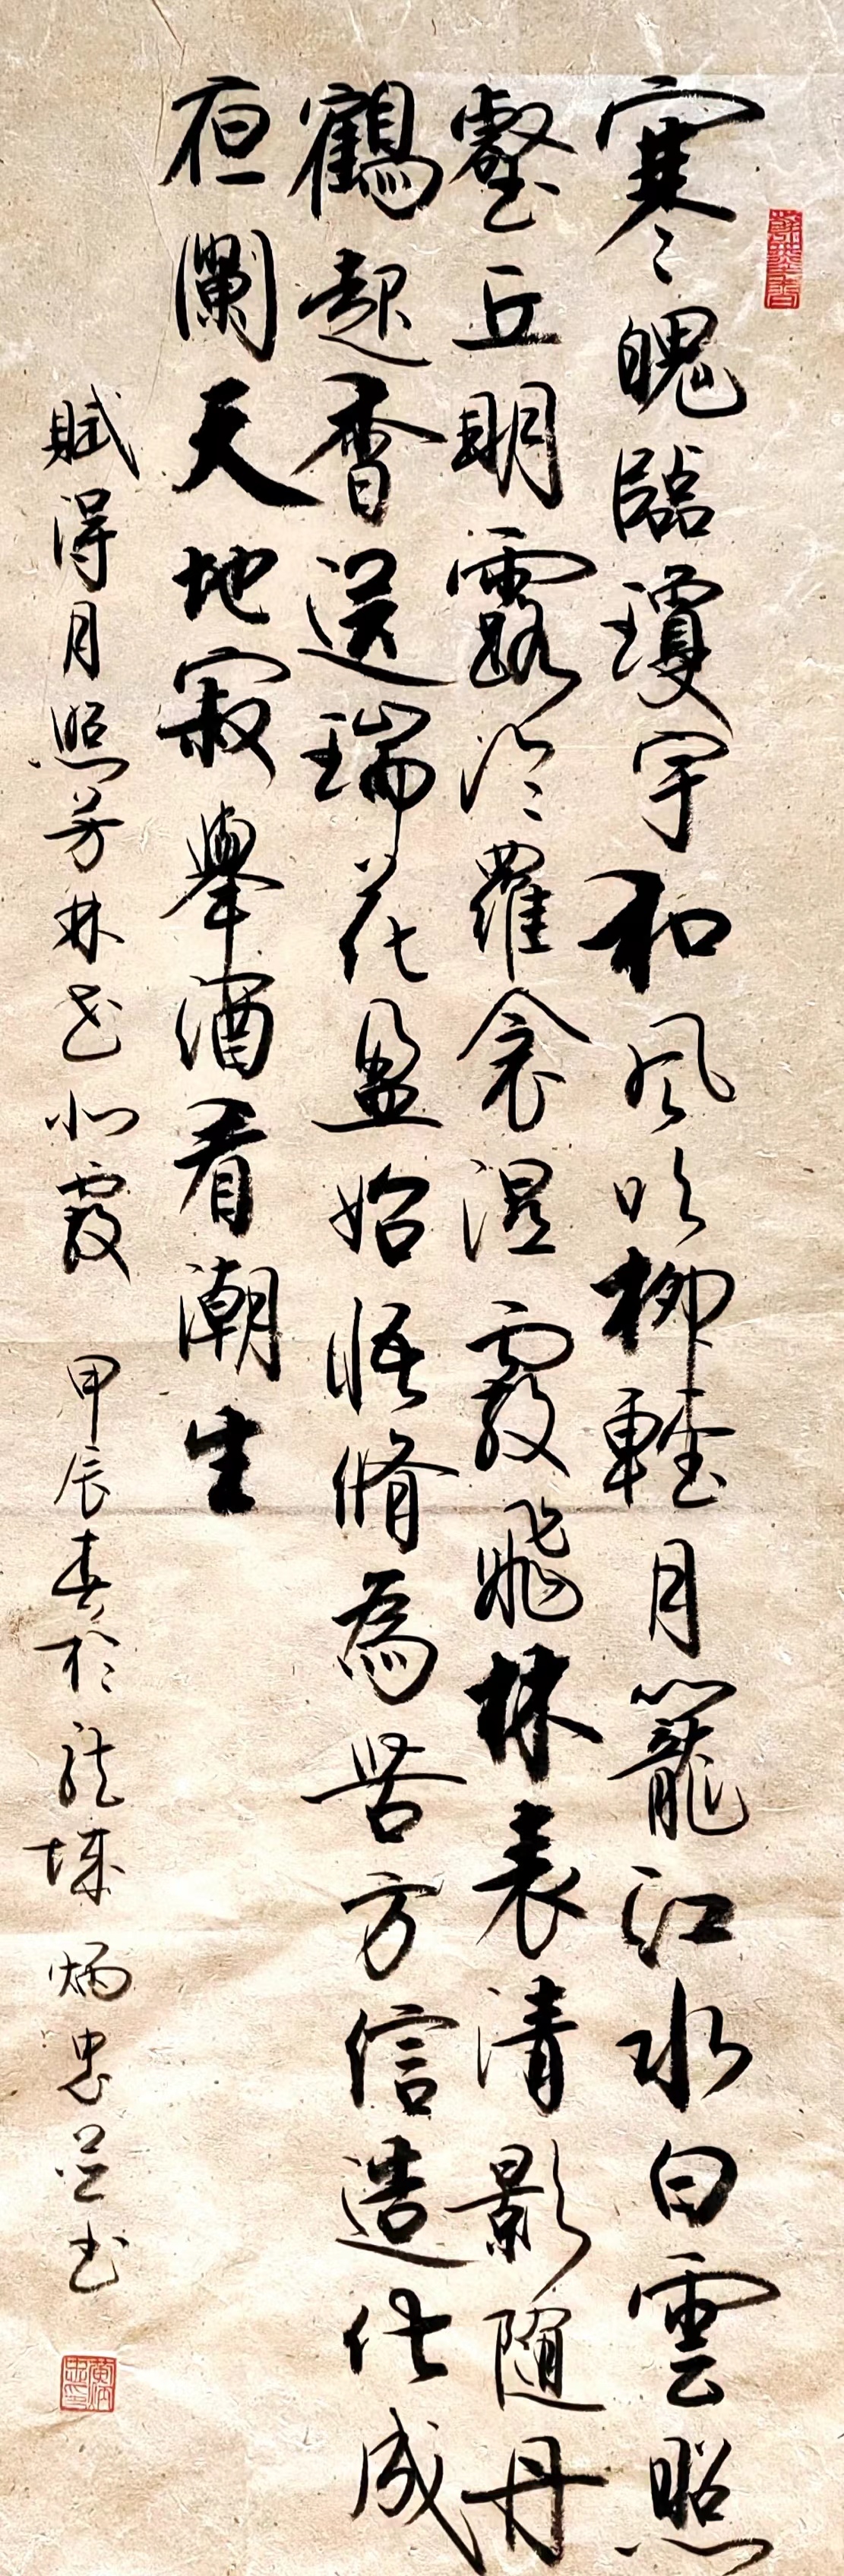 寒魄臨瓊宇和風吹柳輕月籠江水白雲照
壑丘明露冷羅衾濕霞飛林表清影隨丹
鶴起香送瑞花盈始悟脩為苦方信造化成
夜闌天地寂舉酒看潮生
賦得月照芳林花似霰 甲辰春於龍城 炳忠并书